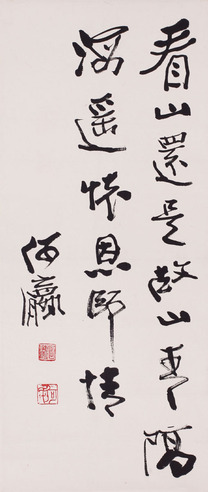 看山還是故山青隔
海遥懷恩師情
何瀛